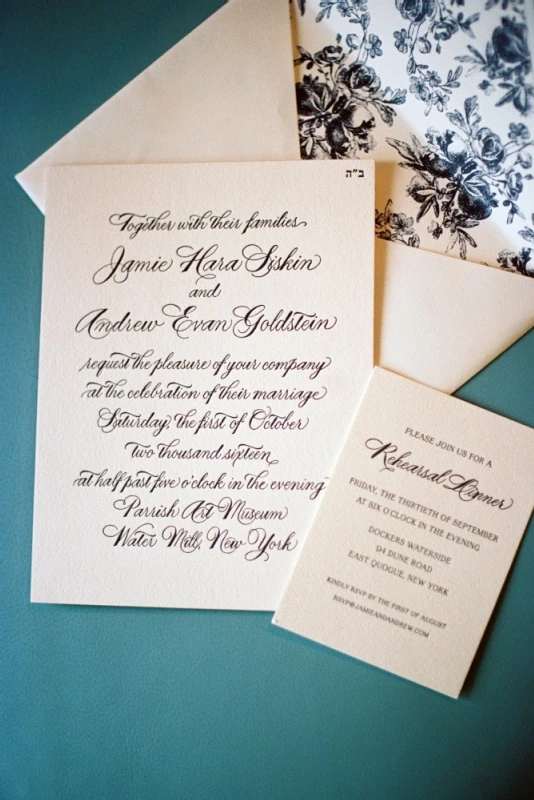 ב"ה
Together with their families
Jamie Hara Siskin
and
Andrew Evan Goldstein
request the pleasure of your company
at the celebration of their marriage
Saturday, the first of October
two thousand sixteen
at half past five o'clock in the evening
Parrish Art Museum
Water Mill, New York
PLEASE JOIN US FOR A
Rehearsal Dinner
FRIDAY, THE THIRTIETH OF SEPTEMBER
AT SIX O'CLOCK IN THE EVENING
DOCKERS WATERSIDE
94 DUNE ROAD
EAST QUOGUE, NEW YORK
KINDLY RSVP BY THE FIRST OF AUGUST
RSVP@JAMIEANDANDREW.COM